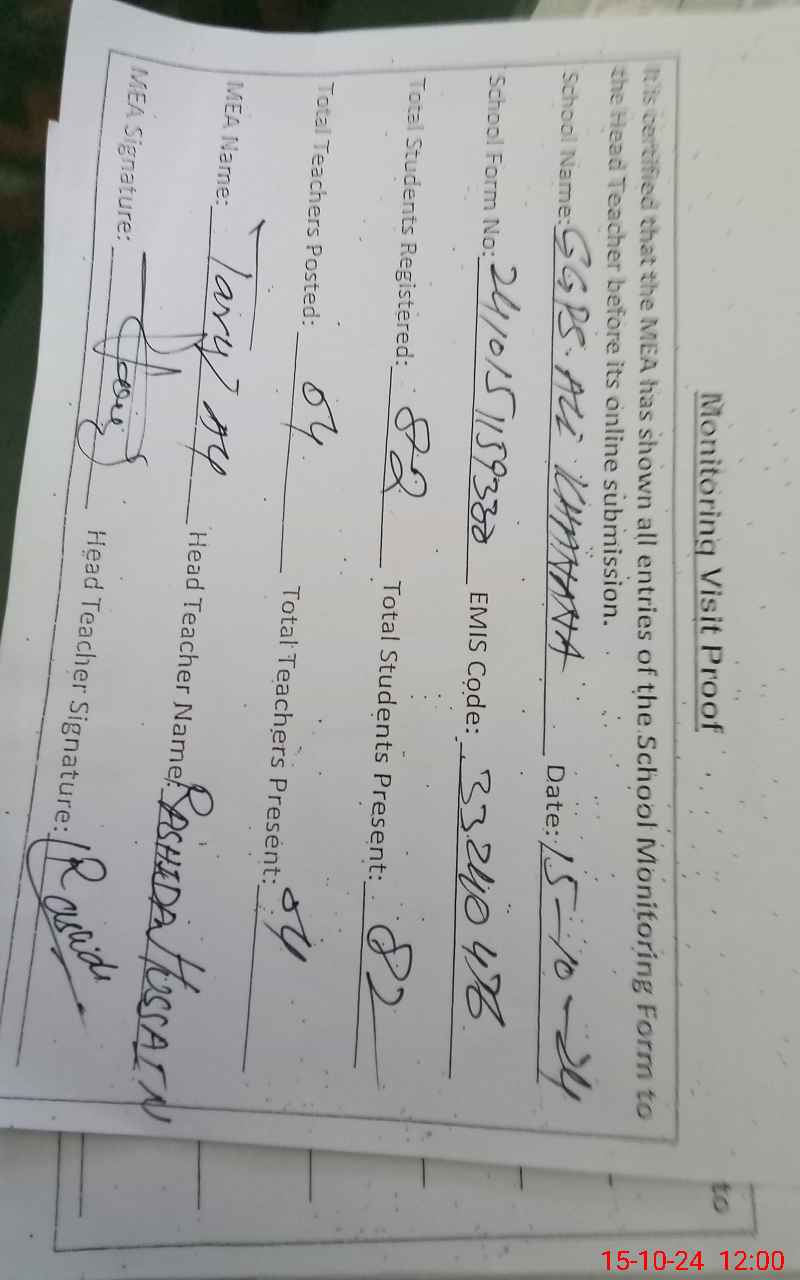 Monitoring Visit Proof
It is certified that the MEA has shown all entries of the School Monitoring Form to
the Head Teacher before its online submission.
School Name: GGPS. ALI KHANANA Date: 15-10-24
School Form No: EMIS Code: 33240476
Total Students Registered: 82 Total Students Present: 82
Total Teachers Posted: 04 Total Teachers Present: 04
MEA Name: Head Teacher Name: RASHIDA HUSSAIN
MEA Signature: Head Teacher Signature: Rashida
to
15-10-24 12:00